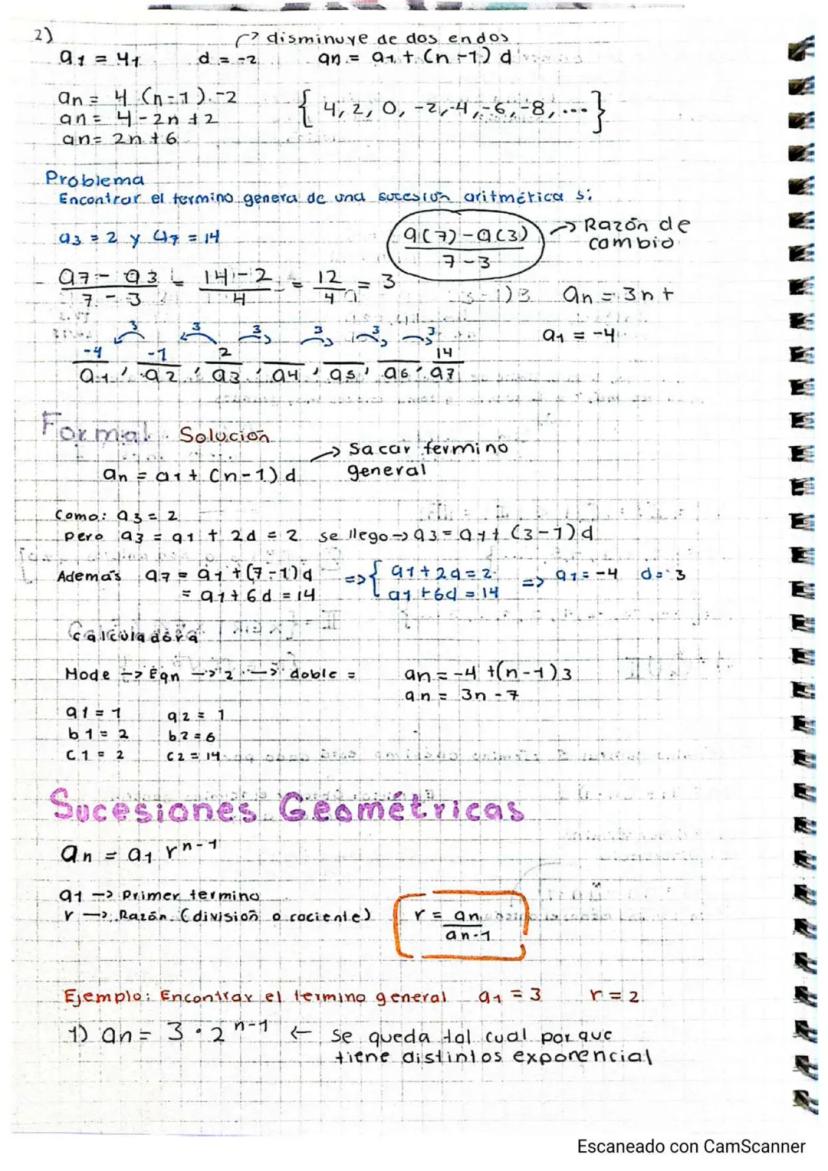 2)
→ disminuye de dos en dos
a1 = 4, d = -2 an = a1 + (n-1) d
an = 4 (n-1).-2
an = 4 - 2n + 2
an = 2n + 6
{ 4, 2, 0, -2, -4, -6, -8, ... }
Problema
Encontrar el termino genera de una sucesión aritmética si:
a3 = 2 y a7 = 14
a(7) - a(3) / 7 - 3 → Razón de cambio
a7 - a3 / 7 - 3 = 14 - 2 / 4 = 12 / 4 = 3
an = 3n +
a1 = -4
3 3 3 3 3 3
-4 -1 2 14
a1, a2, a3, a4, a5, a6, a7
Formal Solución
an = a1 + (n-1) d → Sacar termino general
Como: a3 = 2
pero a3 = a1 + 2d = 2 se llego → a3 = a1 + (3-1) d
Además a7 = a1 + (7-1) d
= a1 + 6d = 14
=> { a1 + 2d = 2
a1 + 6d = 14
=> a1 = -4 d = 3
Calculadora
Mode → Eqn → 2 → doble =
a1 = 1 a2 = 1
b1 = 2 b2 = 6
c1 = 2 c2 = 14
an = -4 + (n-1) 3
an = 3n - 7
Sucesiones Geométricas
an = a1 r^n-1
a1 → Primer termino
r → Razón (división o cociente)
r = an / an-1
Ejemplo: Encontrar el termino general a1 = 3 r = 2
1) an = 3 · 2^n-1 ← Se queda tal cual porque
tiene distintos exponencial
Escaneado con CamScanner